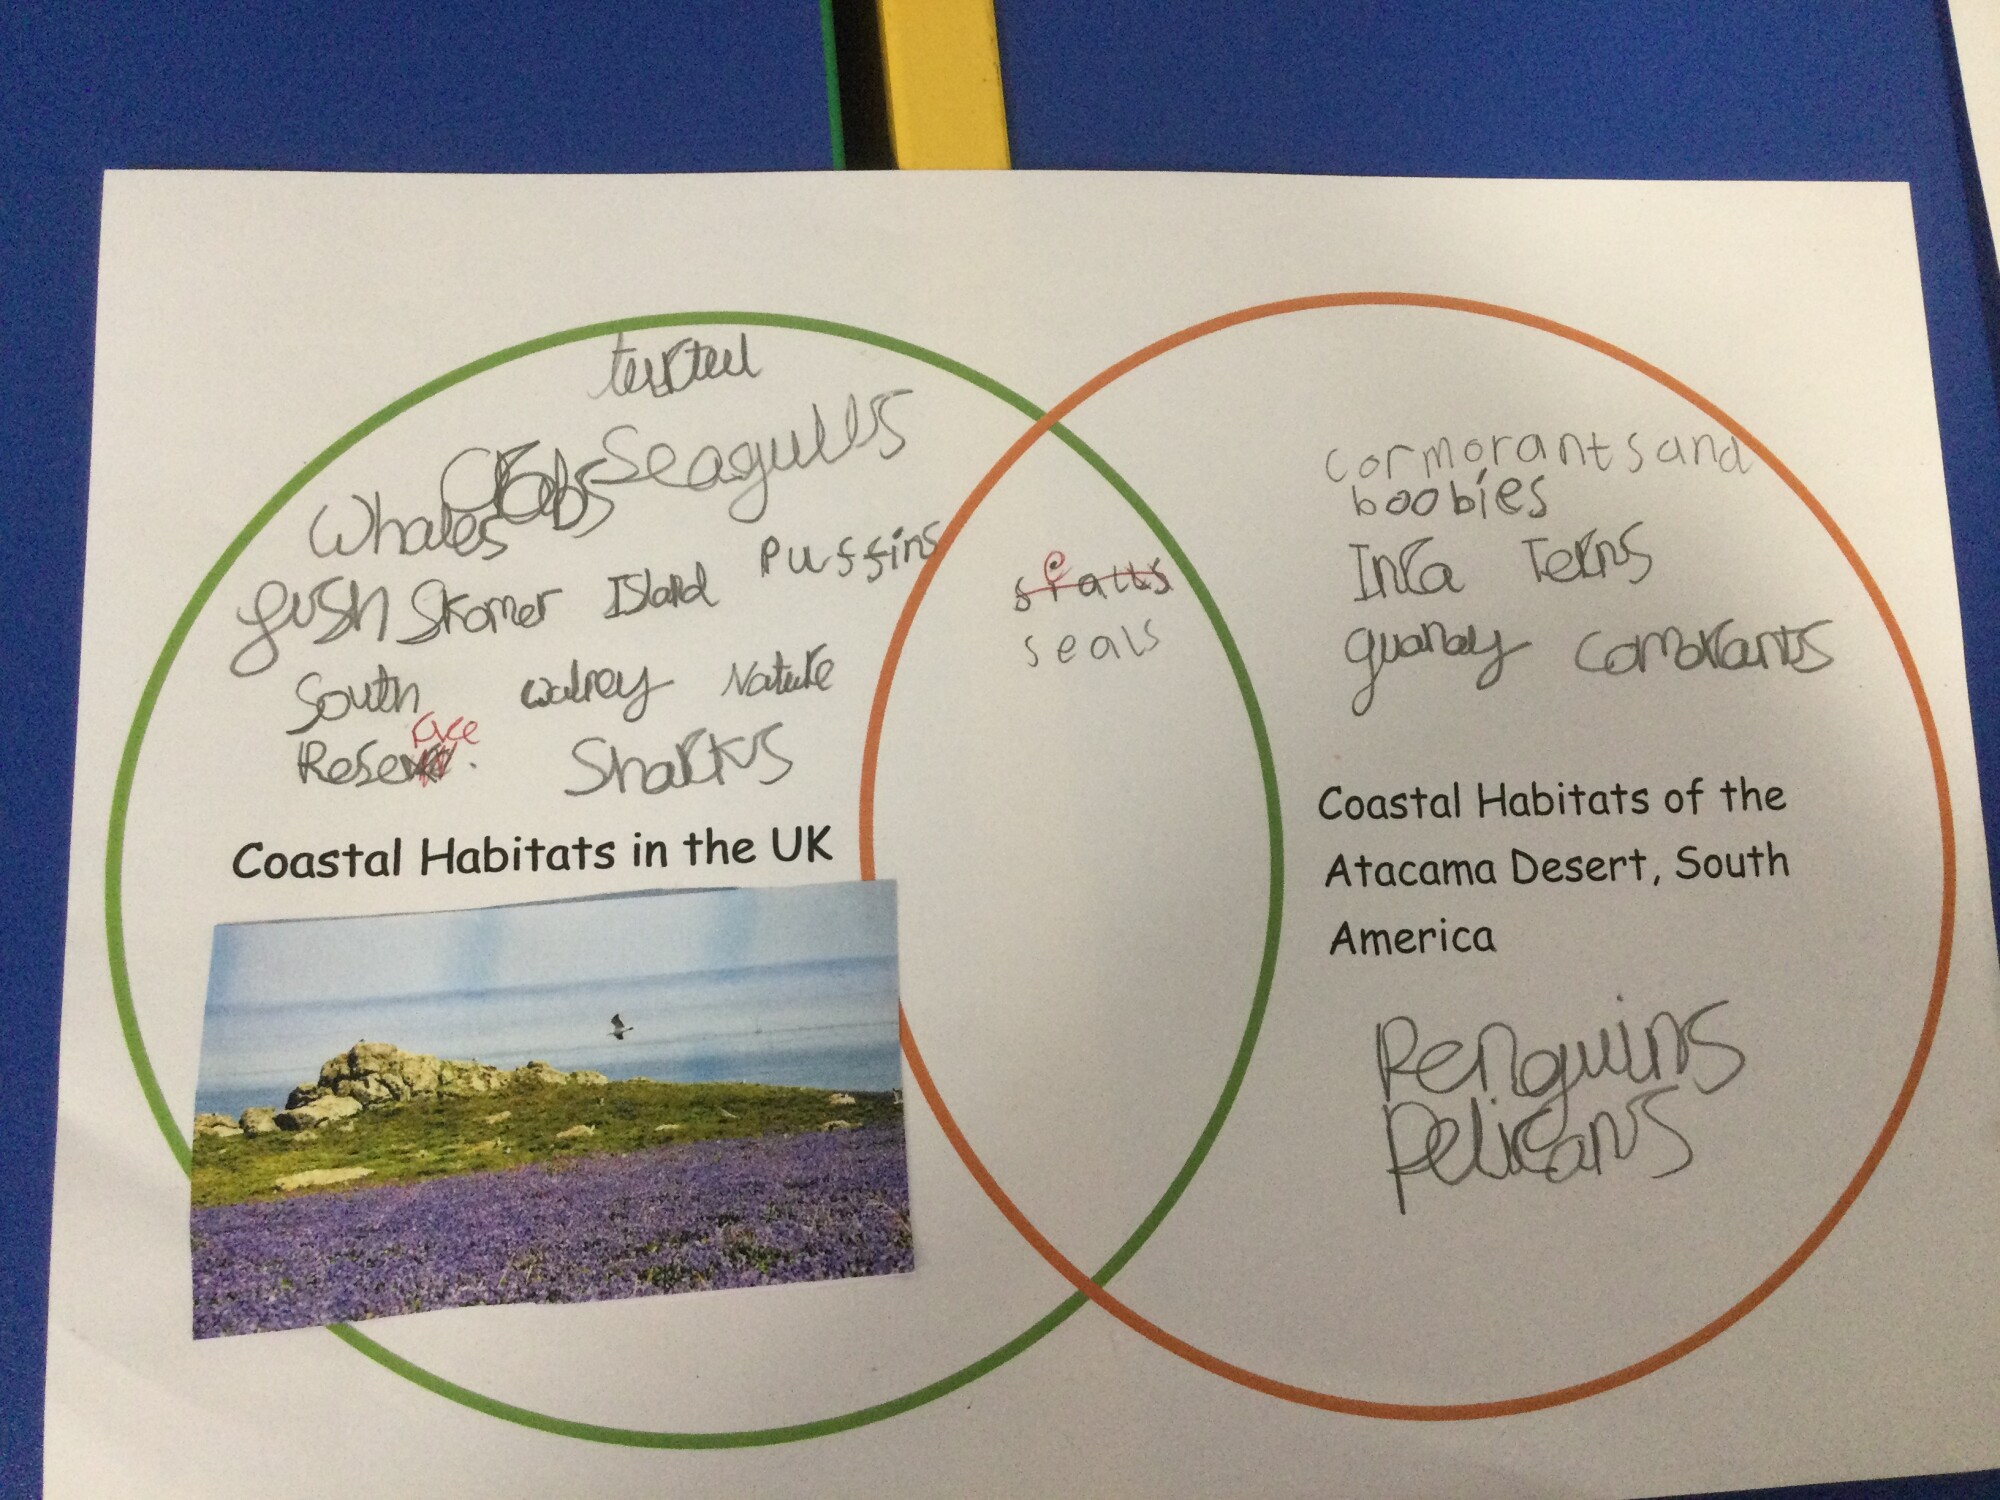 turtul
Crabs Seagulls
Whales
fush Skomer Island Puffins
South walney Nature
rve
Reserv.
Sharks
Coastal Habitats in the UK
e
sralls
seals
cormorants and
boobies
Inca Terns
guanay comorants
Coastal Habitats of the
Atacama Desert, South
America
Penguins
Pelicans